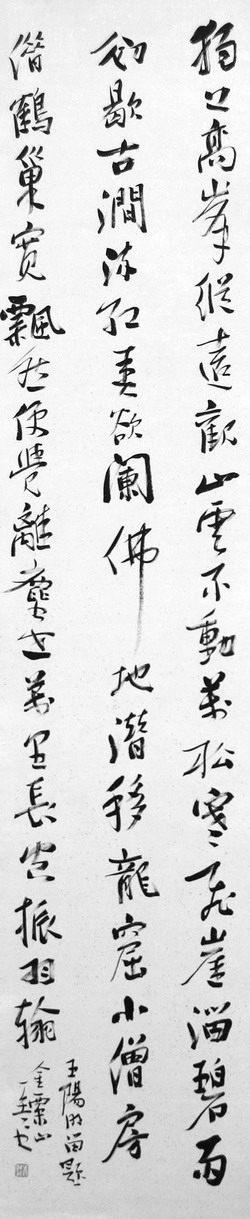 独上高峯縱遠觀山雲不動萬松寒飛崖溜碧雨
初歇古澗流紅春欲闌佛地潛移龍窟小僧房
借鶴巢寬飄然便覺離塵世萬里長空振羽翰
王陽明留題
金粟山